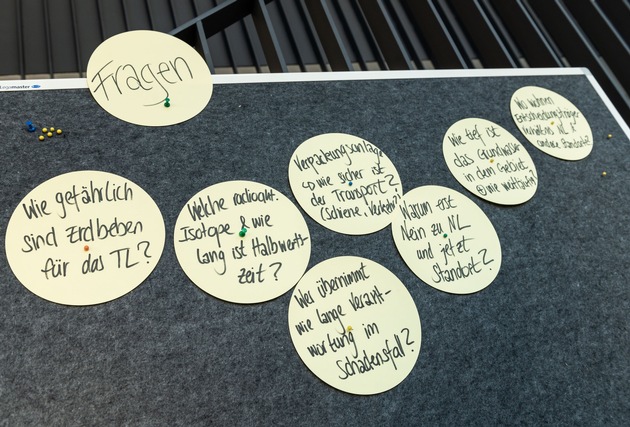 Fragen
Legamaster
Wie gefährlich
sind Erdbeben
für das TL?
Welche radioakt.
Isotope & wie
lang ist Halbwerts-
zeit?
Verpackungsanlage
wie sicher ist
der Transport?
(Schiene, Verkehr)
Wer übernimmt
wie lange Verant-
wortung im
Schadensfall?
Warum erst
Nein zu NL
und jetzt
Standort?
Wie tief ist
das Grundwasser
in dem Gebiet
wie
Wo wohnen
Entscheidungsträger
NL &
Standort?